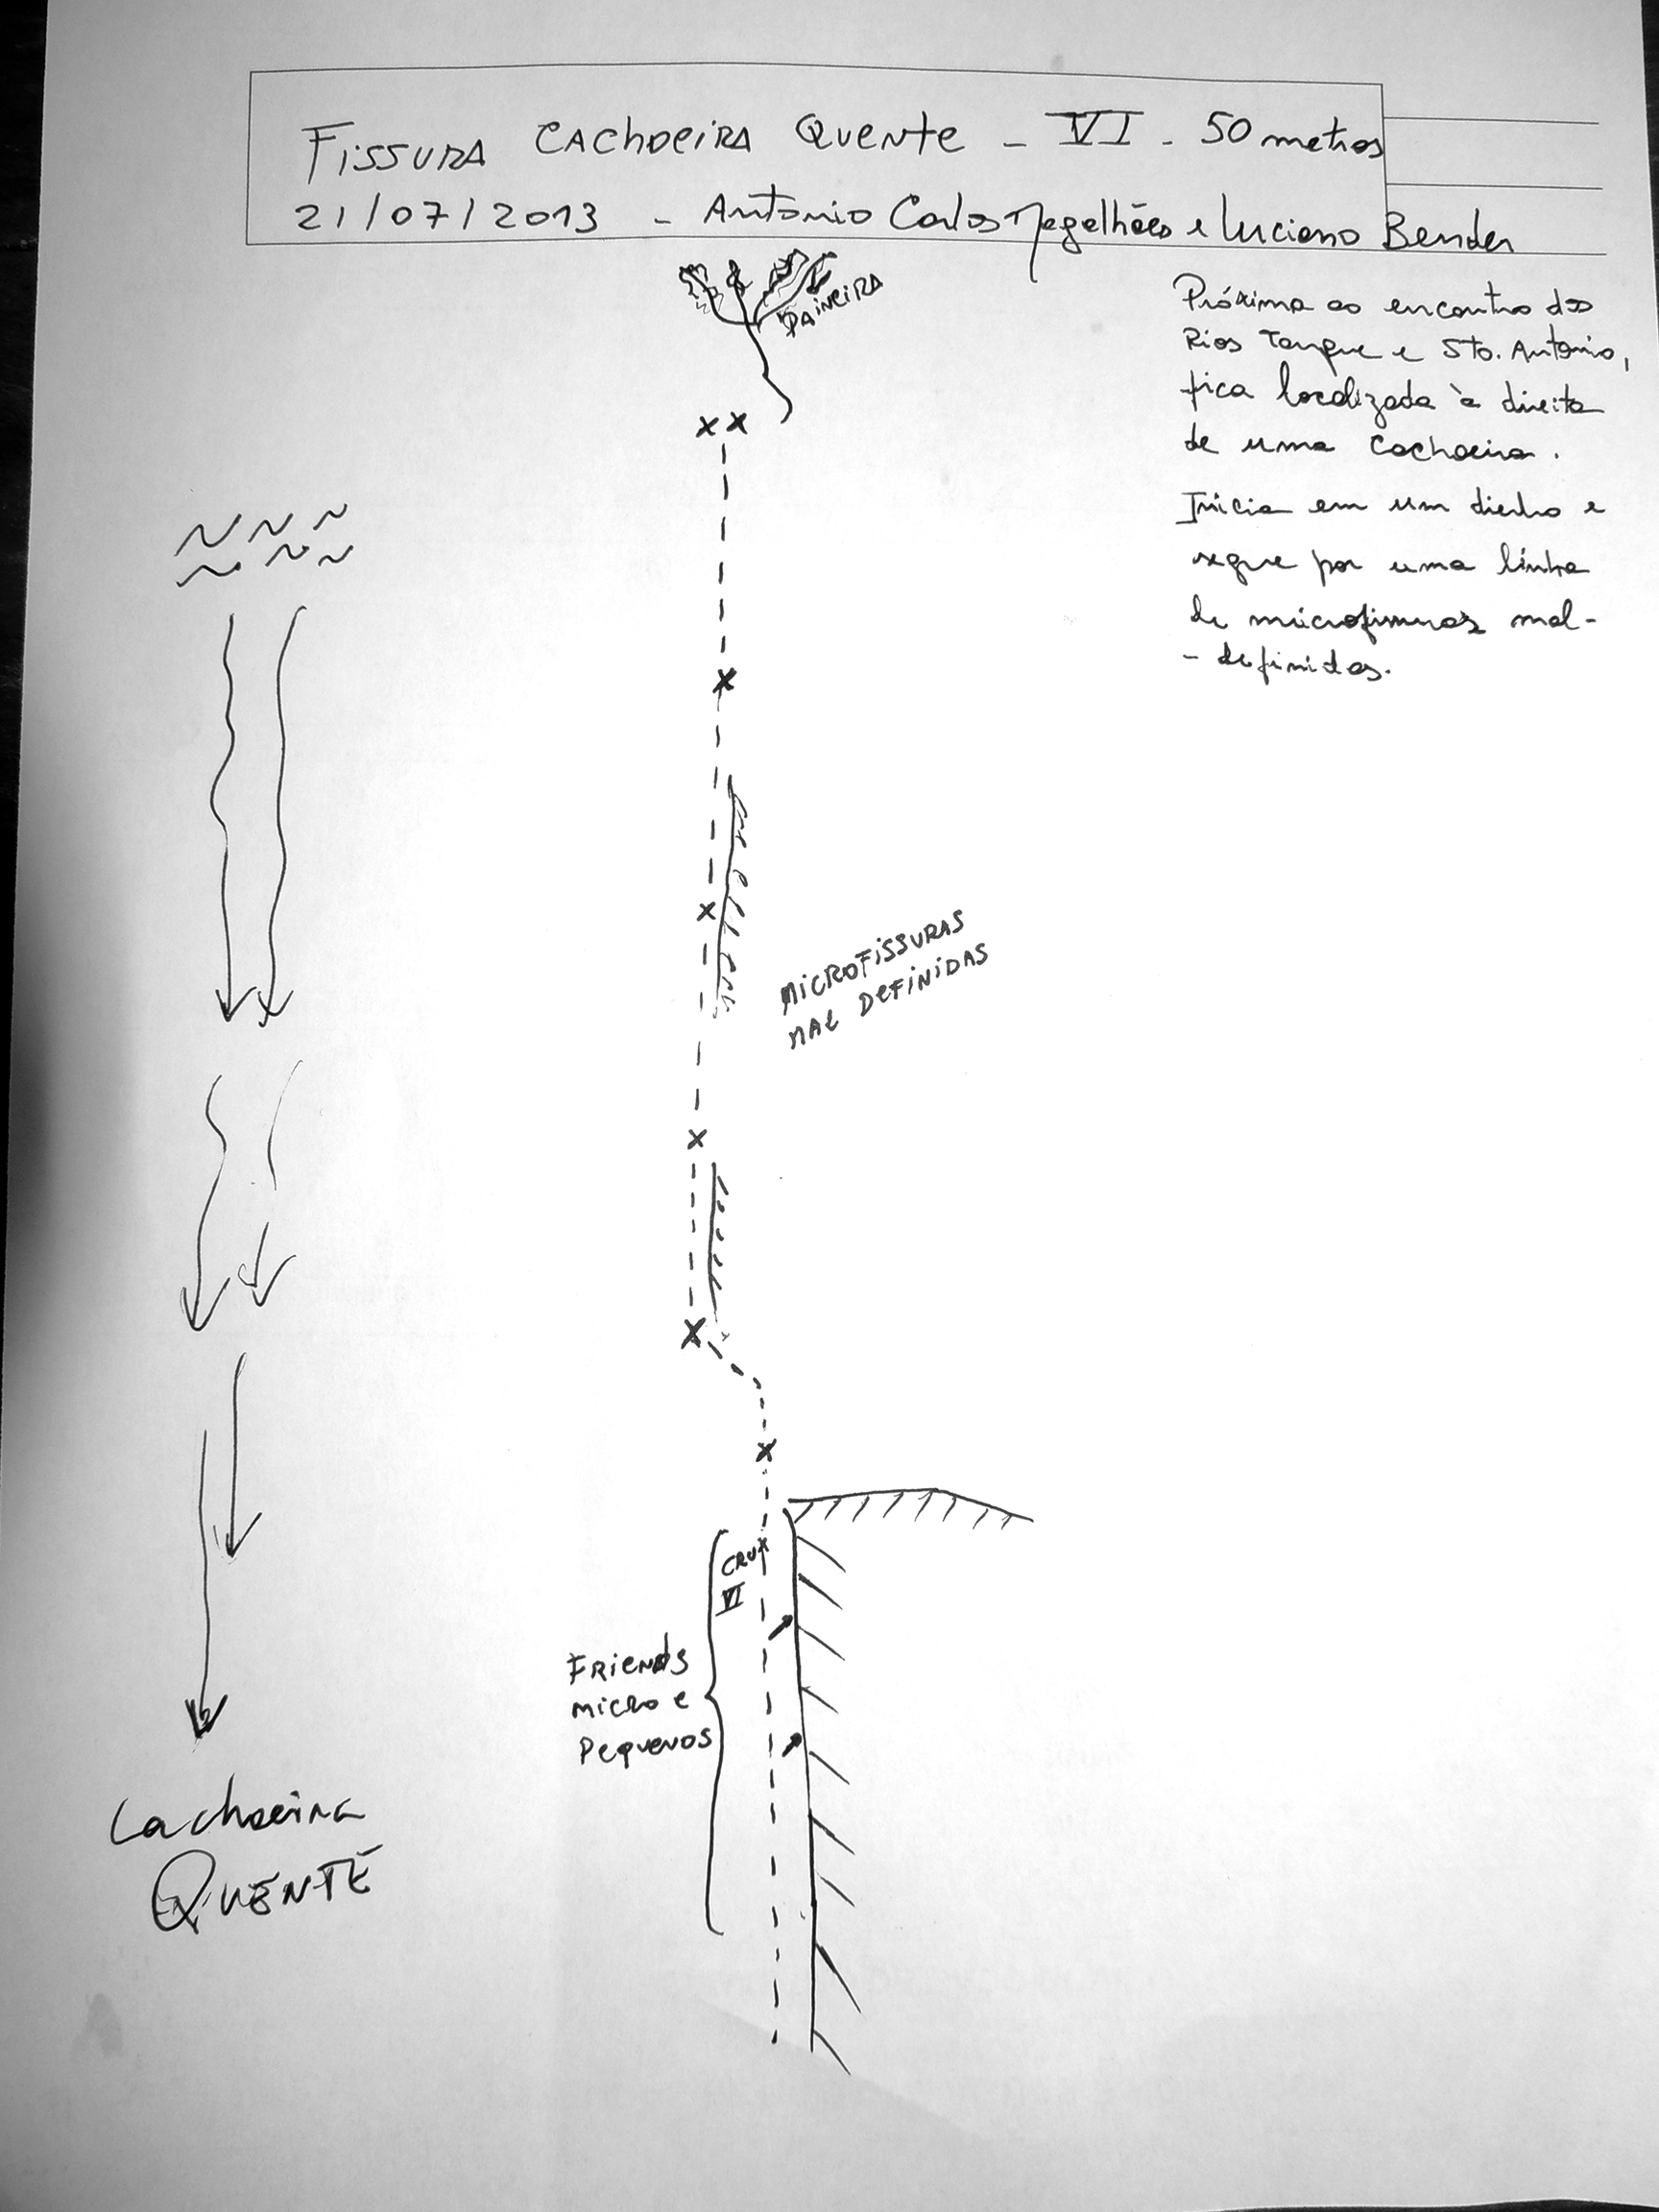 FISSURA CACHOEIRA QUENTE - VI - 50 metros
21/07/2013 - Antonio Carlos Magalhães e Luciano Bender
PAINEIRA
Próxima ao encontro dos
Rios Tanque e Sto. Antonio,
fica localizada à direita
de uma cachoeira.
Inicia em um diedro e
segue por uma linha
de microfissuras mal-
- definidas.
MICROFISSURAS
MAL DEFINIDAS
CRUX
VI
FRIENDS
MICRO E
PEQUENOS
Cachoeira
QUENTE